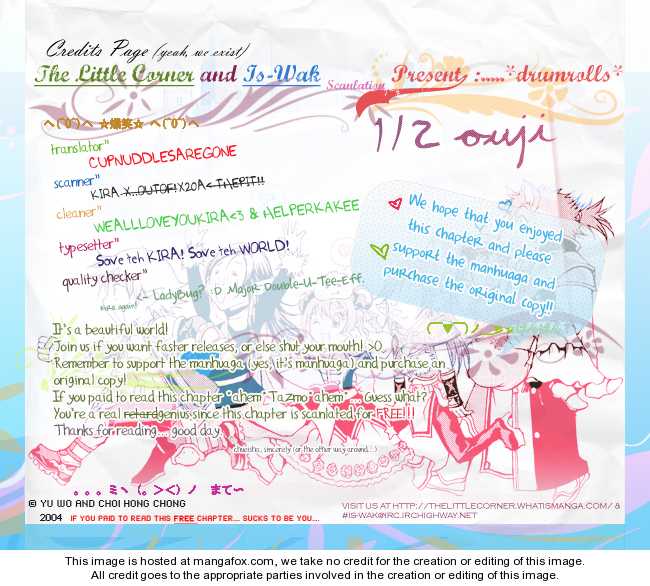 Credits Page (yeah, we exist)
The Little Corner and Is-Wak Scanlation Present, :.....*drumrolls*
ヘ(^0^)ヘ ☆爆笑☆ ヘ(^0^)ヘ
1/2 ouji
translator"
CUPNUDDLESAREGONE
scanner"
KIRA X..OUTOF!X20A<THEPIT!!
cleaner"
WEALLLOVEYOUKIRA<3 & HELPERKAKEE
typesetter"
Save teh KIRA! Save teh WORLD!
quality checker"
kira again! <- LadyBug? :D Major Double-U-Tee-Eff.
We hope that you enjoyed
this chapter and please
support the manhuaga and
purchase the original copy!!
It's a beautiful world!
Join us if you want faster releases, or else shut your mouth! >O
Remember to support the manhuaga (yes, it's manhuaga) and purchase an
original copy!
If you paid to read this chapter *ahem* Tazmo *ahem*... Guess what?
You're a real retardgenius since this chapter is scanlated for FREE!!!
Thanks for reading... good day.
© YU WO AND CHOI HONG CHONG
2004 IF YOU PAID TO READ THIS FREE CHAPTER... SUCKS TO BE YOU...
VISIT US AT HTTP://THELITTLECORNER.WHATISMANGA.COM/ &
#IS-WAK@IRC.IRCHIGHWAY.NET
This image is hosted at mangafox.com, we take no credit for the creation or editing of this image.
All credit goes to the appropriate parties involved in the creation or editing of this image.